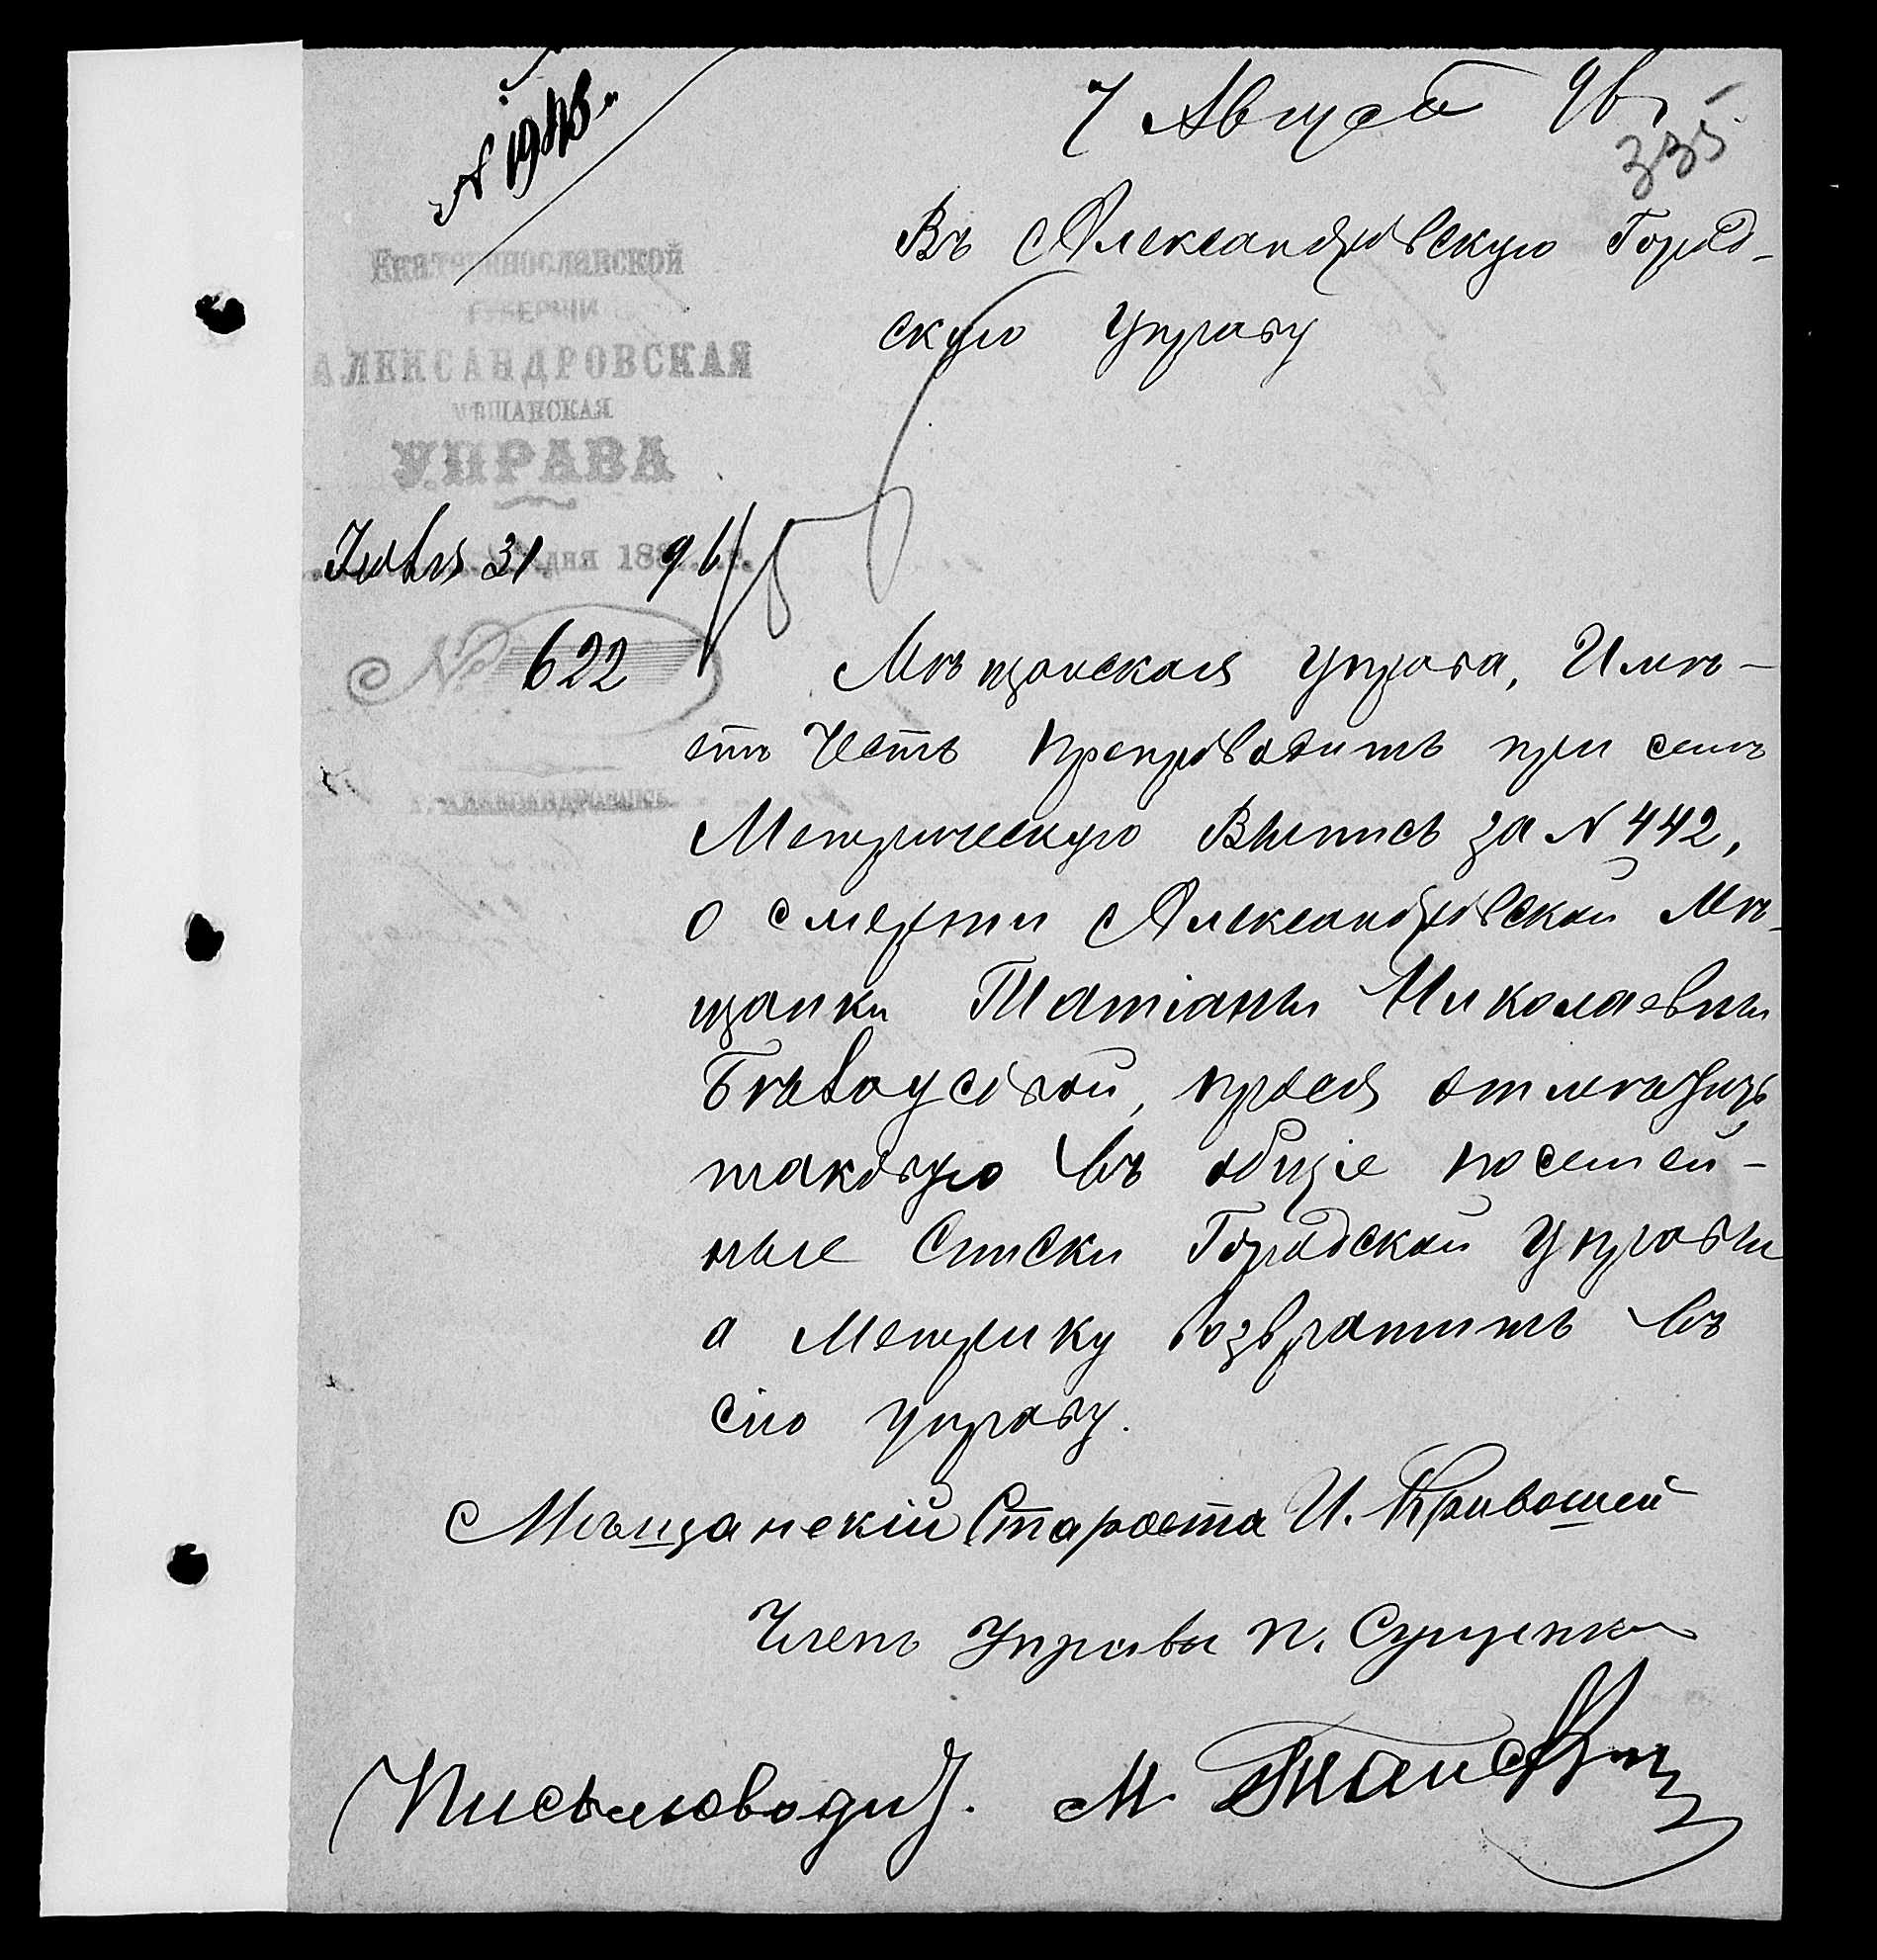 7 Августа 96 г
335
Въ Александровскую Город-
скую Управу
Екатеринославской
ГУБЕРНИИ
АЛЕКСАНДРОВСКАЯ
МѢЩАНСКАЯ
УПРАВА
Іюля 31 дня 1896 г.
№ 622
г. Александровскъ.
Мѣщанская управа, Имѣ-
етъ Честь препроводить при семъ
Метрическую Выпись за N 442,
о смерти Александровской Мѣ-
щанки Татіаны Николаевны
Бѣлоусовой, прося отмѣтить
таковую въ общіе посемей-
ные Списки Городской Управы
а Метрику возвратить въ
сію управу.
Мѣщанскій Староста И. Кривошей
Членъ Управы П. Сущенко
Письмоводит. М.